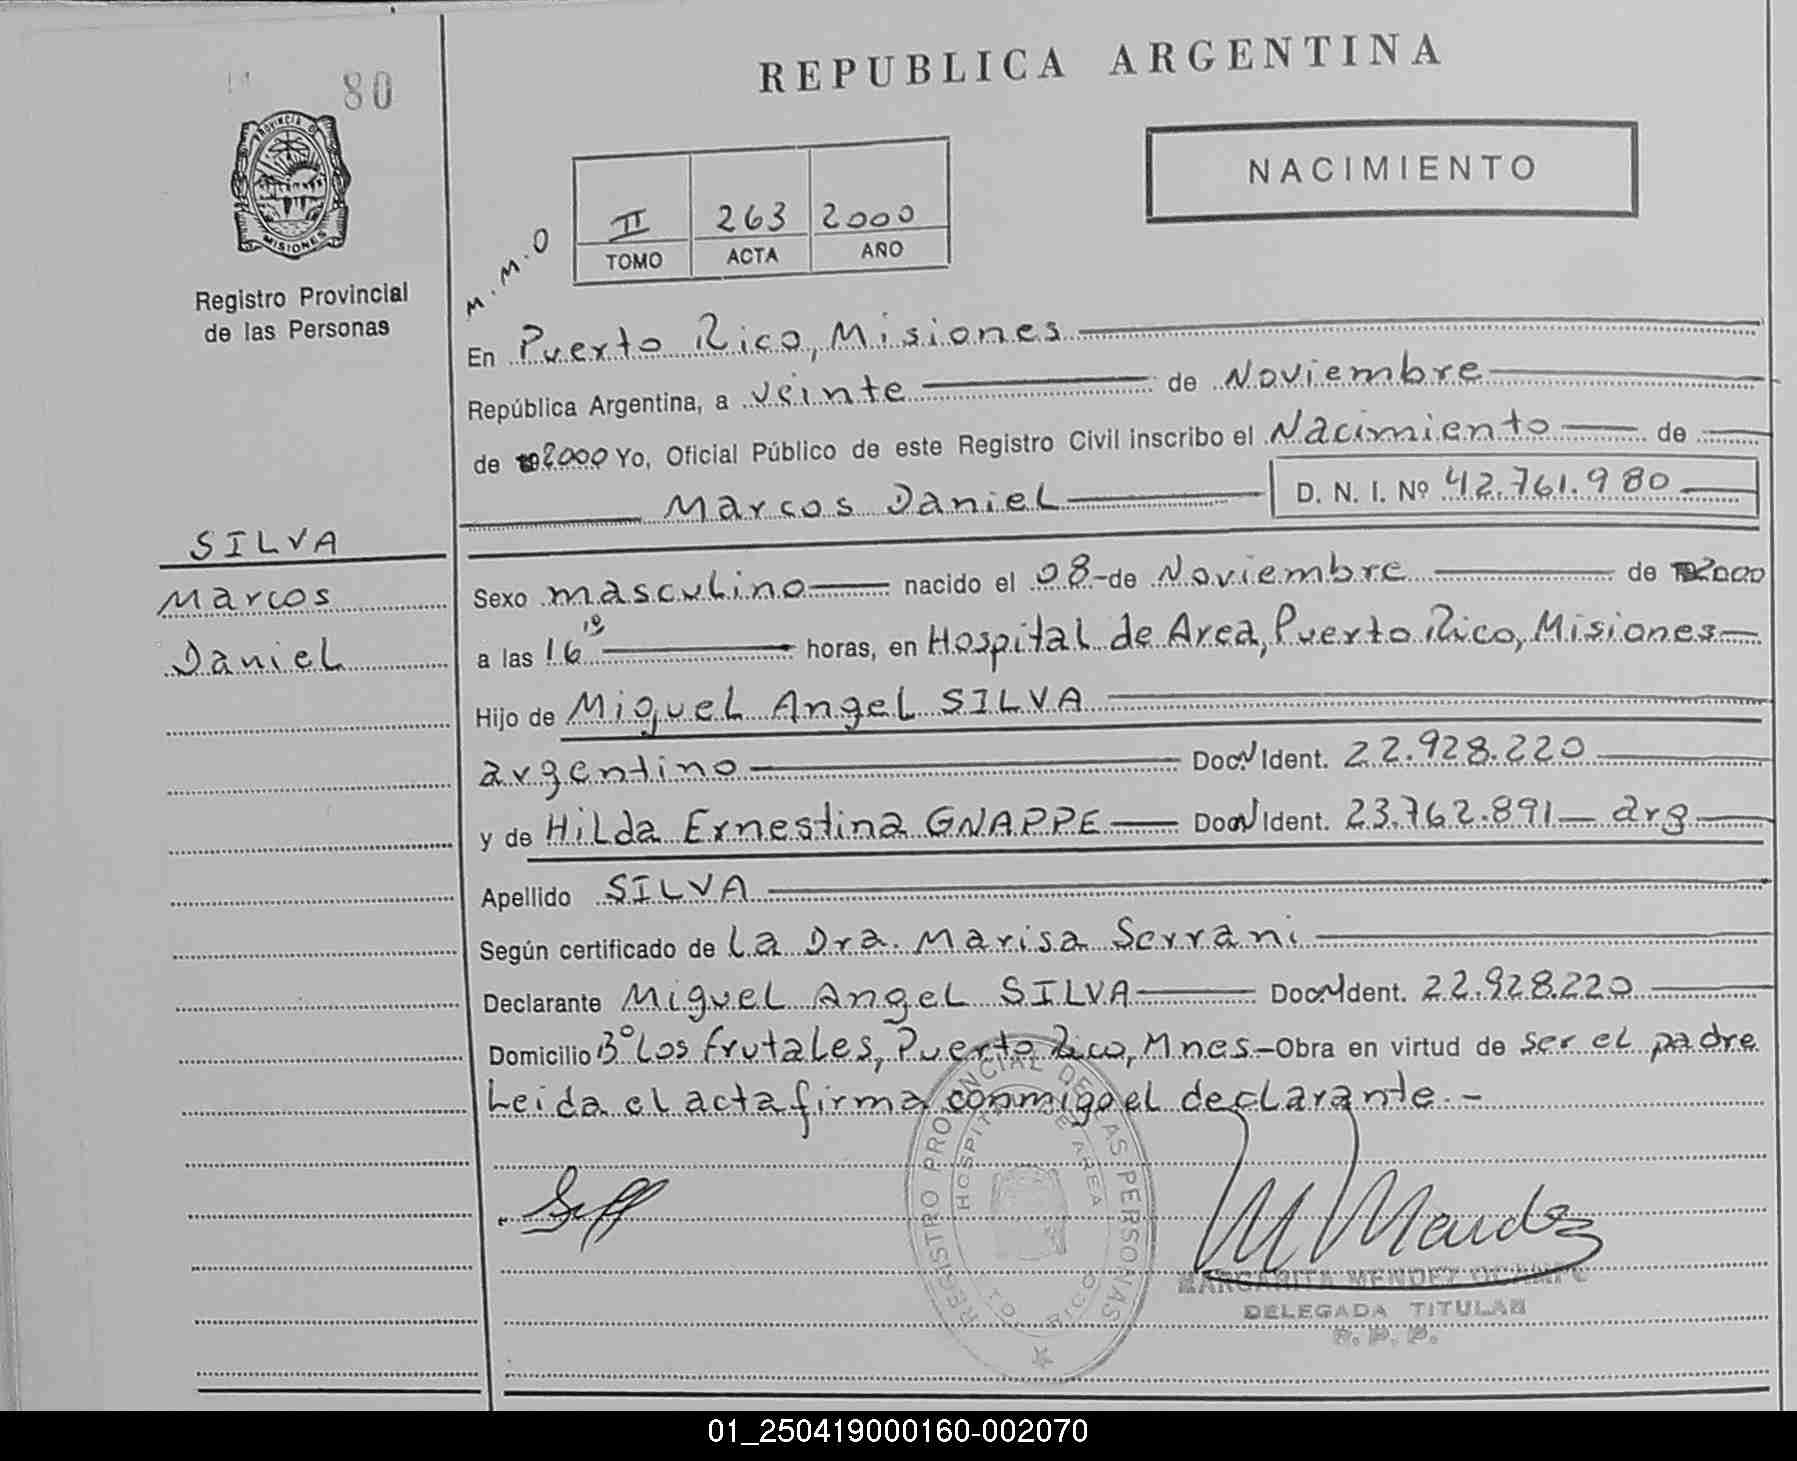 80
REPUBLICA ARGENTINA
PROVINCIA DE
MISIONES
Registro Provincial
de las Personas
NACIMIENTO
II 263 2000
TOMO ACTA AÑO
M.M.O
En Puerto Rico, Misiones
República Argentina, a veinte de Noviembre
de 2000 Yo, Oficial Público de este Registro Civil inscribo el Nacimiento de
Marcos Daniel D. N. I. Nº 42.761.980
SILVA
Marcos
Daniel
Sexo masculino nacido el 08 de Noviembre de 2000
a las 16 horas, en Hospital de Area, Puerto Rico, Misiones
Hijo de Miguel Angel SILVA
argentino Doc. Ident. 22.928.220
y de Hilda Ernestina GNAPPE Doc. Ident. 23.762.891 arg
Apellido SILVA
Según certificado de La Dra. Marisa Serrani
Declarante Miguel Angel SILVA Doc. Ident. 22.928.220
Domicilio Bº Los Frutales, Puerto Rico, Mnes - Obra en virtud de ser el padre
Leida el acta firma conmigo el declarante.-
REGISTRO PROVINCIAL DE LAS PERSONAS
HOSPITAL DE AREA
PTO RICO
MARGARITA MENDEZ OCAMPO
DELEGADA TITULAR
R. P. P.
01_250419000160-002070